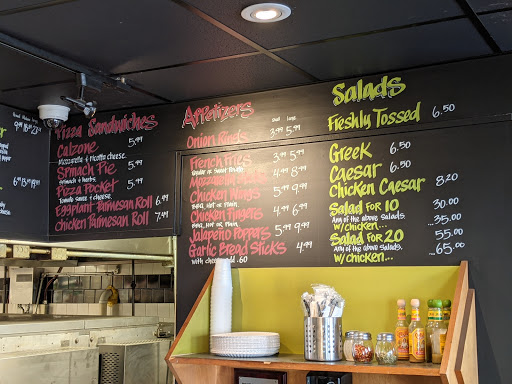 Pizza Sandwiches
Calzone 5.99
Mozzarella & ricotta cheese.
Spinach Pie 5.99
Spinach & herbs.
Pizza Pocket 5.99
Tomato sauce & cheese.
Eggplant Parmesan Roll 6.99
Chicken Parmesan Roll 7.99
Appetizers
Small Large
Onion Rings 3.99 5.99
French Fries 3.99 5.99
Mozzarella Sticks 4.99 8.99
Chicken Wings 5.99 9.99
BBQ, Hot or Plain.
Chicken Fingers 4.99 6.99
BBQ, Hot or Plain.
Jalapeno Poppers 5.99 9.99
Garlic Bread Sticks 4.99
with cheese add .60
Salads
Freshly Tossed 6.50
Greek 6.50
Caesar 6.50
Chicken Caesar 8.20
Salad for 10 30.00
Any of the above Salads.
w/ Chicken... ...35.00
Salad for 20 55.00
Any of the above Salads.
w/ Chicken... ...65.00